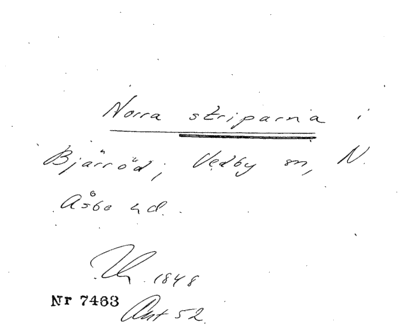 Norra striparna i
Bjärröd, Vedby sn, N.
Åsbo hd.
1848
Nr 7463
Ant 52.